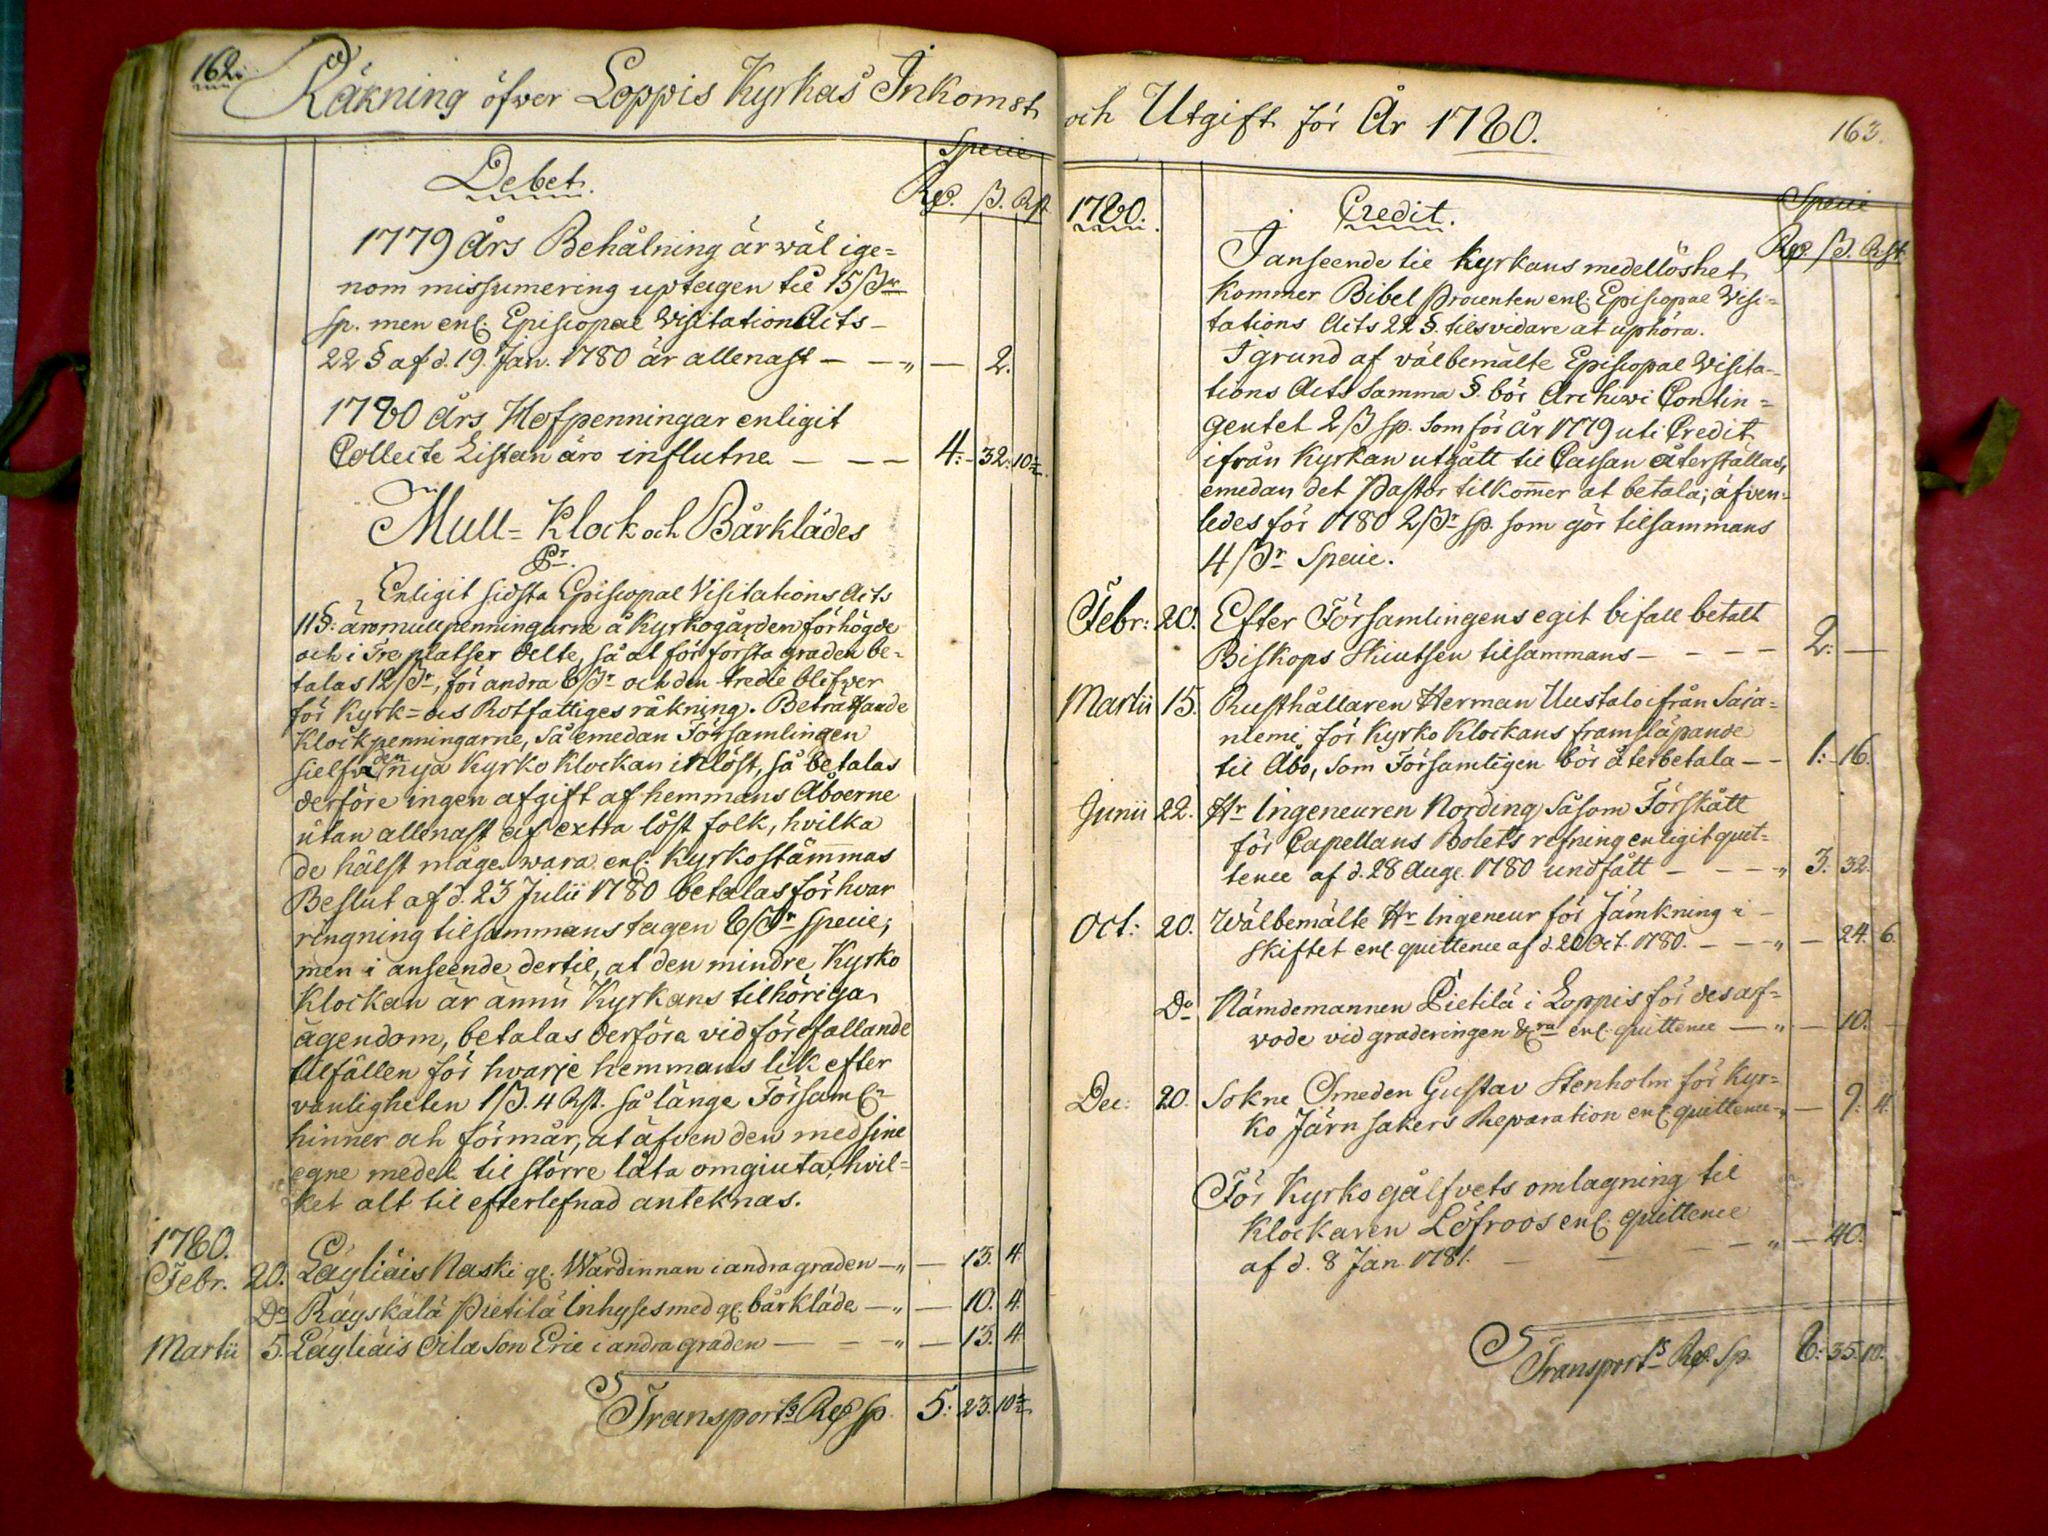 162.
Räkning öfwer Loppis Kyrkas Inkomst
Debet.
Specie
Rd. ß. Rst.
1779 Års Behålning är wäl ige=
nom missumering uptagen til 15 ßr
sp. men enl: Episcopal Visitation Acts
22 § af d. 19. Jan. 1780 är allenast — — „ — 2.
1780 Års Hofpenningar enligit
Collecte Listan äro influtne — — — 4: 32: 10½.
Mull= Klock och Bårklädes
Pr.
Enligit sidsta Episcopal Visitations Acts
11 §: äro mullpenningarne å Kyrkogården förhögde
och i Tre platser delte, så at för första graden be=
talas 12 ßr, för andra 6 ßr och den tredie blifwer
för Kyrk= och Rotfattiges räkning. Beträffande
Klockpenningarne, så emedan Församlingen
sielf den nya Kyrko Klockan inlöst, så betalas
derföre ingen afgift af hemmans Åboerne
utan allenast af extra löst folk, hvilka
de hälst måge wara enl: Kyrkostämmas
Beslut af d. 23 Julii 1780 betalas för hvar
ringning tilsammans tagen 6 ßr specie;
men i anseende dertil, at den mindre Kyrko
Klockan är ännu Kyrkans tilhöriga
ägendom, betalas derföre vid förefallande
tilfällen för hvarje hemmans lik efter
vanligheten 1 ß. 4 Rst. så länge Förssaml:n
hinner och förmår, at äfven den med sine
egne medel til större låta omgiuta, hvil=
ket alt til efterlefnad anteknas.
1780.
Febr. 20. Läyliäis Naski gl. Wärdinnan i andra graden — „ — 13. 4.
Do Räyskälä Pietilä Inhyses med gl. bårkläde — „ — 10. 4.
Martii 5. Läyliäis Oila Son Eric i andra graden — — „ — 13. 4.
Transports Rd sp. 5: 23. 10½.
och Utgift för År 1780.
163.
1780.
Credit.
Specie
Rd. ß. Rst.
I anseende til kyrkans medellöshet
kommer Bibel Procenten enl: Episcopal Visi=
tations Acts 22 §. tils vidare at uphöra.
I grund af välbemälte Episcopal Visita=
tions Acts samma §. bör Archivi Contin=
gentet 2 ß sp. som för år 1779 uti Credit
ifrån Kyrkan utgått til Cassan återställas,
emedan det Pastor tilkommer at betala; äfven=
ledes för 1780 2 ßr sp. som gör tilsammans
4 ßr Specie.
Febr: 20. Efter Församlingens egit bifall betalt
Biskops Skiutsen tilsammans — — — — 2: —
Martii 15. Rusthållaren Herman Uustalo ifrån Saja=
niemi för Kyrko Klockans framsläpande
til Åbo, som Församligen bör återbetala — — 1: 16.
Junii 22. Hr Ingeneuren Nording såsom Förskått
för Capellans Bolets refning enligit quit=
tence af d. 28 Aug. 1780 undfått — — — „ 3. 32.
Oct: 20. Wälbemälte Hr Ingeneur för Jämkning i
skiftet enl. quittence af d. 20 Oct. 1780. — — — „ — 24. 6.
Do Nämdemannen Pietilä i Loppis för des arf=
wode vid graderingen &ra enl. quittence — „ — 10. —
Dec: 20. Sokne Smeden Gustav Stenholm för Kyr=
ko Järn sakers Reparation enl. quittence „ — 9. 4.
För Kyrko gålfvets omlagning til
Klockaren Löfroos enl. quittence
af d. 8 Jan. 1781. — — — — „ — 40.
Transports Rd. Sp. 8: 35. 10.